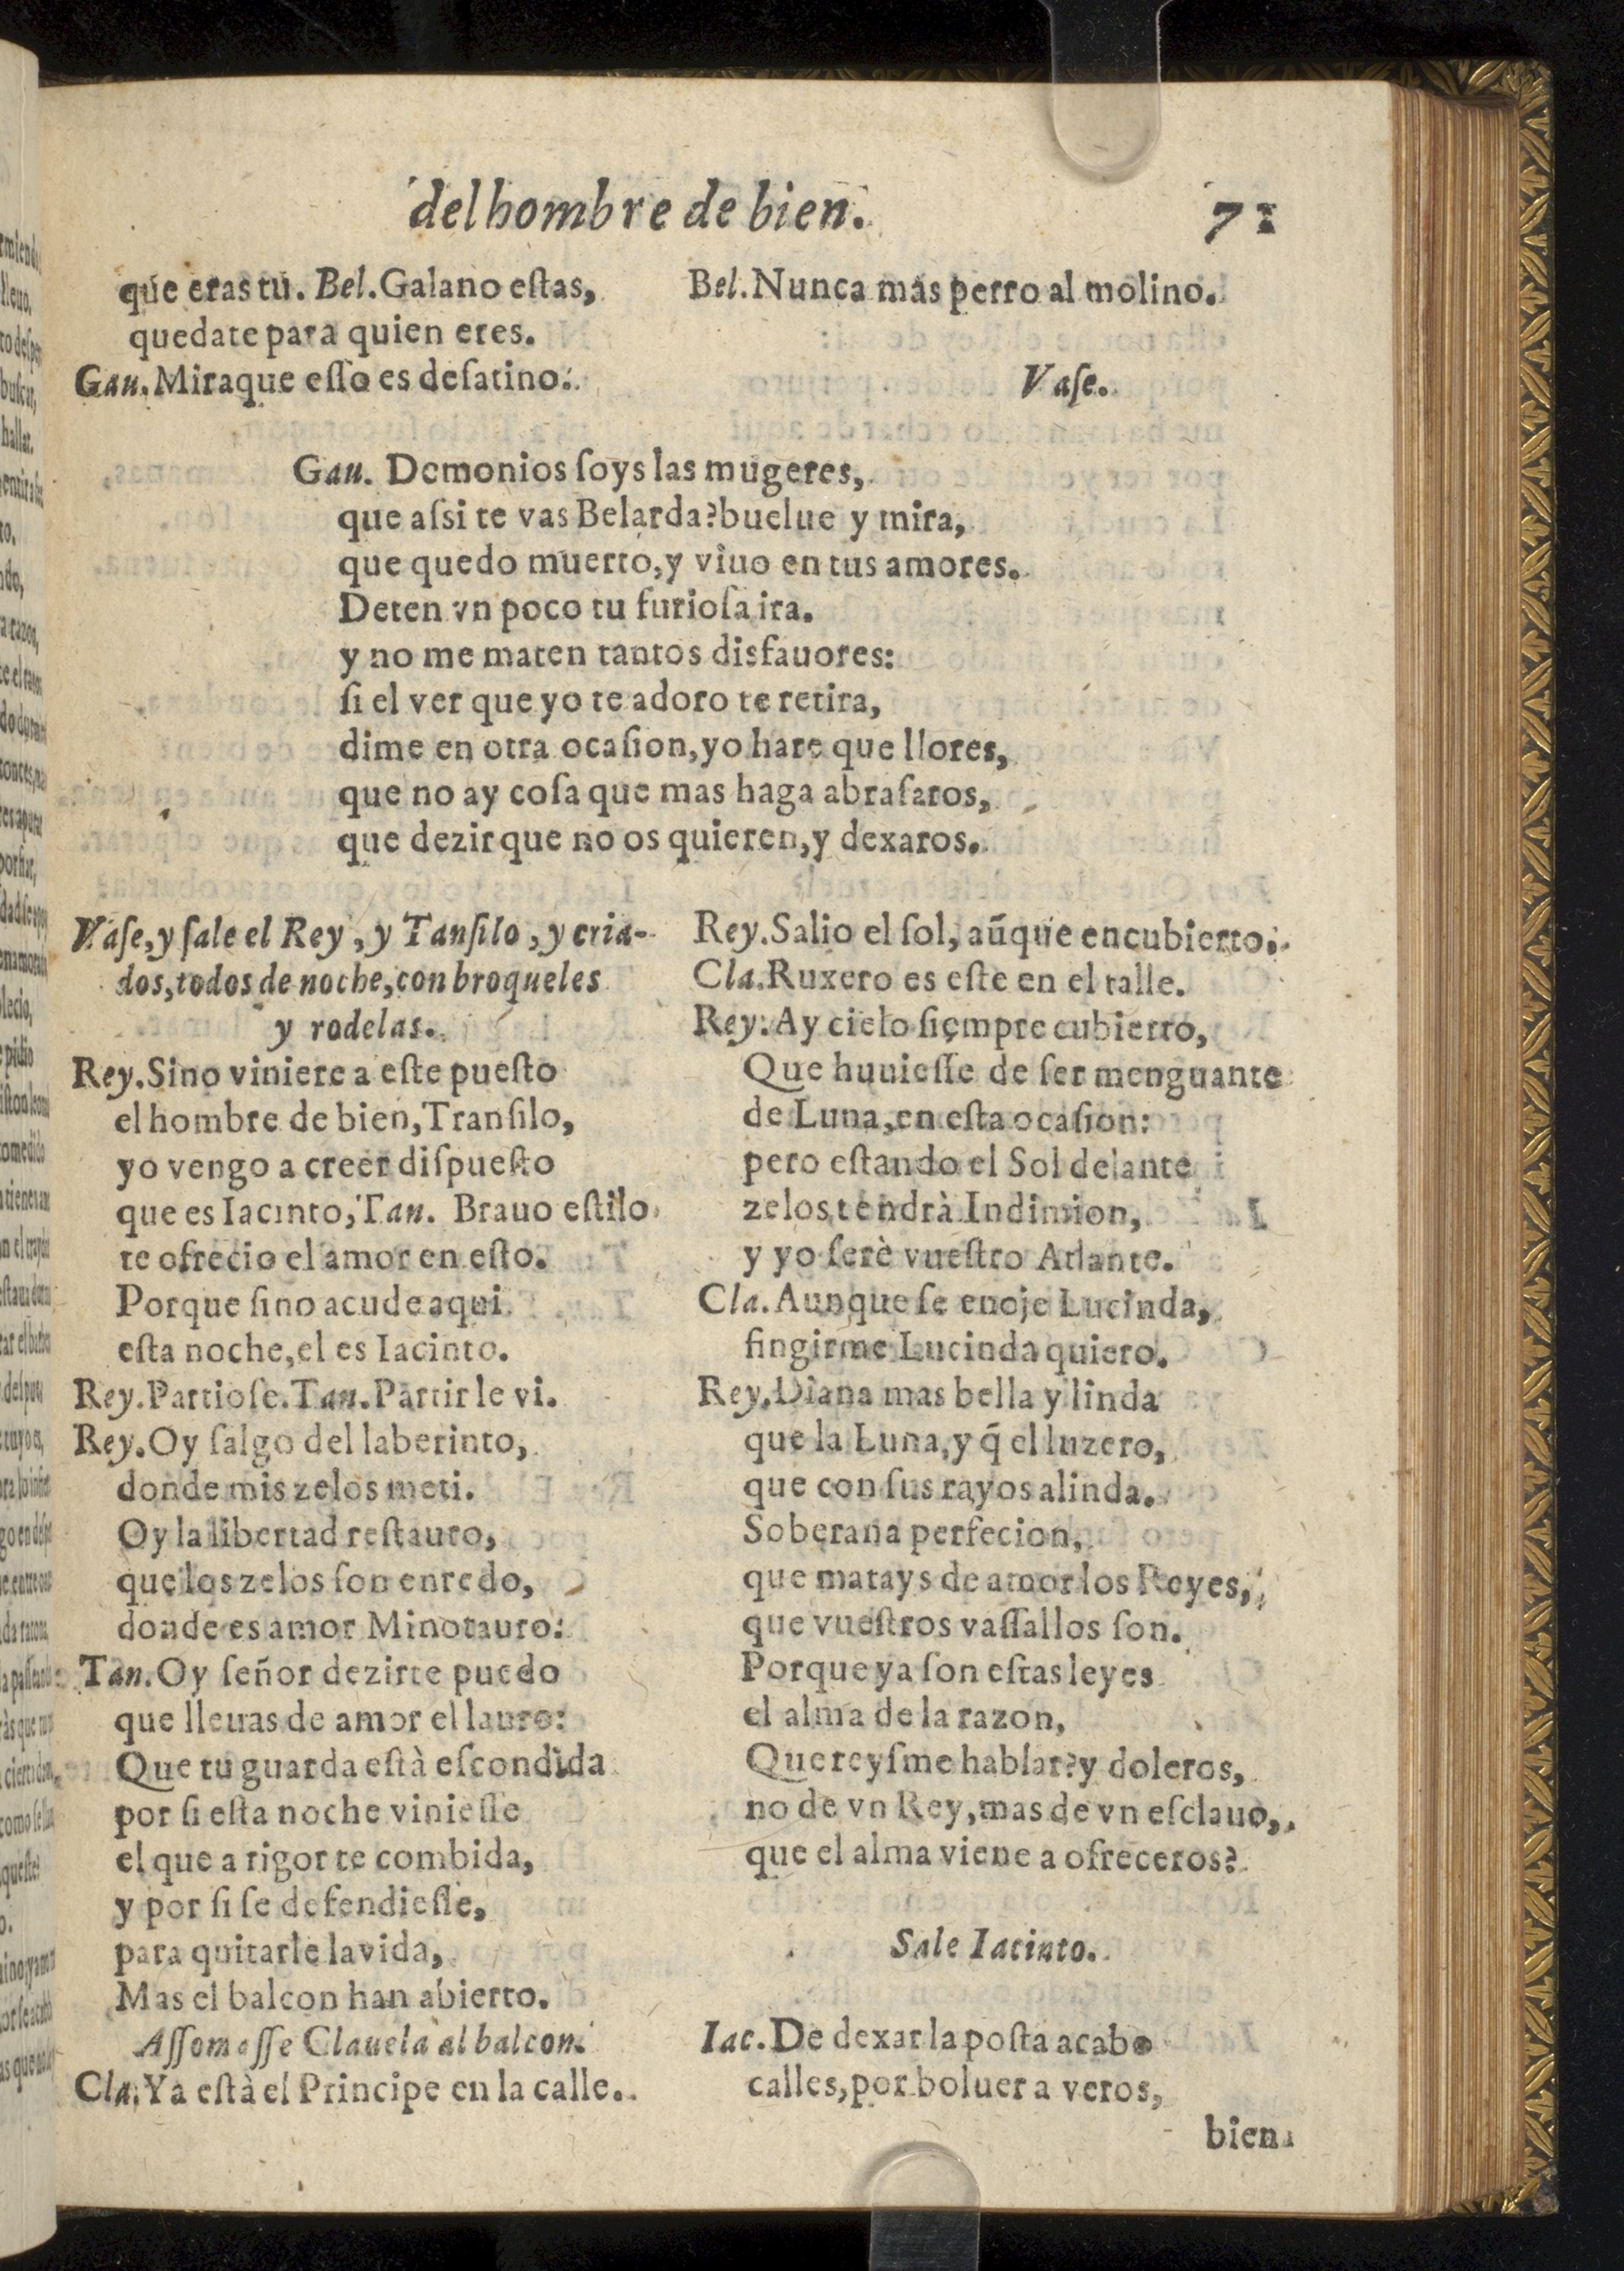 del hombre de bien. 71
que eras tu. Bel. Galano eſtas,
quedate para quien eres.
Gau. Mira que eſſo es deſatino.
Bel. Nunca mas perro al molino.
Vaſe.
Gau. Demonios ſoys las mugeres,
que aſsi te vas Belarda? buelue y mira,
que quedo muerto, y viuo en tus amores.
Deten vn poco tu furioſa ira.
y no me maten tantos disfauores:
ſi el ver que yo te adoro te retira,
dime en otra ocaſion, yo hare que llores,
que no ay coſa que mas haga abraſaros,
que dezir que no os quieren, y dexaros.
Vaſe, y ſale el Rey, y Tanſilo, y cria-
dos, todos de noche, con broqueles
y rodelas.
Rey. Sino viniere a eſte pueſto
el hombre de bien, Tranſilo,
yo vengo a creer diſpueſto
que es Iacinto, Tan. Brauo eſtilo
te ofrecio el amor en eſto.
Porque ſino acude aqui
eſta noche, el es Iacinto.
Rey. Partioſe. Tan. Partir le vi.
Rey. Oy ſalgo del laberinto,
donde mis zelos meti.
Oy la libertad reſtauro,
que los zelos ſon enredo,
donde es amor Minotauro:
Tan. Oy ſeñor dezirte puedo
que lleuas de amor el lauro:
Que tu guarda eſtà eſcondida
por ſi eſta noche vinieſſe
el que a rigor te combida,
y por ſi ſe defendieſſe,
para quitarle la vida,
Mas el balcon han abierto.
Aſſomaſſe Clauela al balcon.
Cla. Ya eſtà el Principe en la calle.
Rey. Salio el ſol, aũque encubierto.
Cla. Ruxero es eſte en el talle.
Rey. Ay cielo ſiempre cubierto,
Que huuieſſe de ſer menguante
de Luna, en eſta ocaſion:
pero eſtando el Sol delante
zelos tendrà Indimion,
y yo ſerè vueſtro Atlante.
Cla. Aunque ſe enoje Lucinda,
fingirme Lucinda quiero.
Rey. Diana mas bella y linda
que la Luna, y q̃ el luzero,
que con ſus rayos alinda.
Soberana perfecion,
que matays de amor los Reyes,
que vueſtros vaſſallos ſon.
Porque ya ſon eſtas leyes
el alma de la razon,
Quereyſme hablar? y doleros,
no de vn Rey, mas de vn eſclauo,
que el alma viene a ofreceros?
Sale Iacinto.
Iac. De dexar la poſta acabo
calles, por boluer a veros,
bien